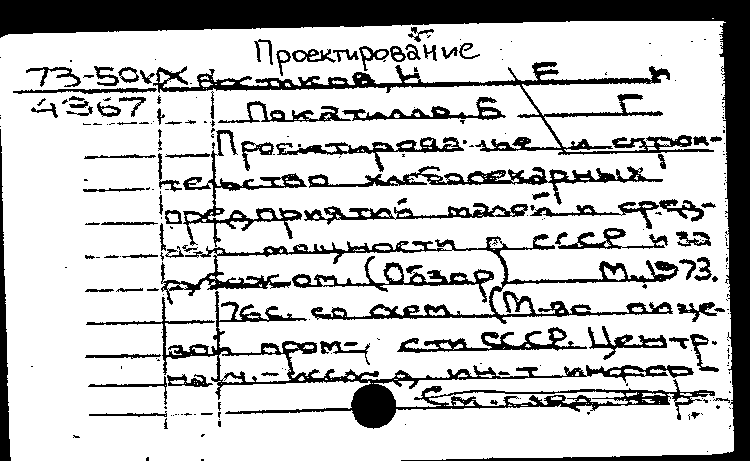 Проектирование
73-50к Хвостиков, Н Е п
4367 Покатилло, Б Г
Проектирование и строи-
тельство хлебопекарных
предприятий малой и сред-
ней мощности в СССР и за
рубежом. (Обзор) М., 1973.
76с. со схем. (М-во пище-
вой пром-сти СССР. Центр.
науч.-исслед. ин-т инфор-
См. след. кар-